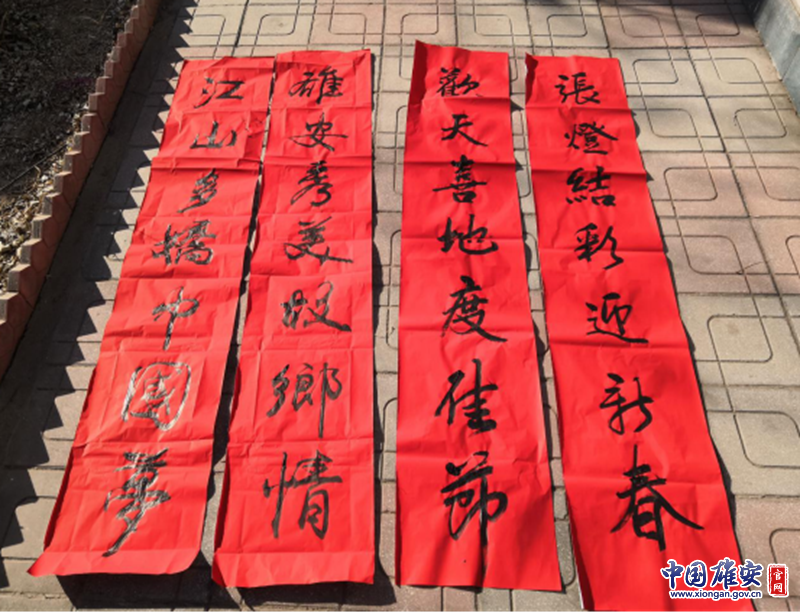 張燈結彩迎新春
歡天喜地度佳節
雄安秀美故鄉情
江山多嬌中国夢
中国雄安 官网
www.xiongan.gov.cn